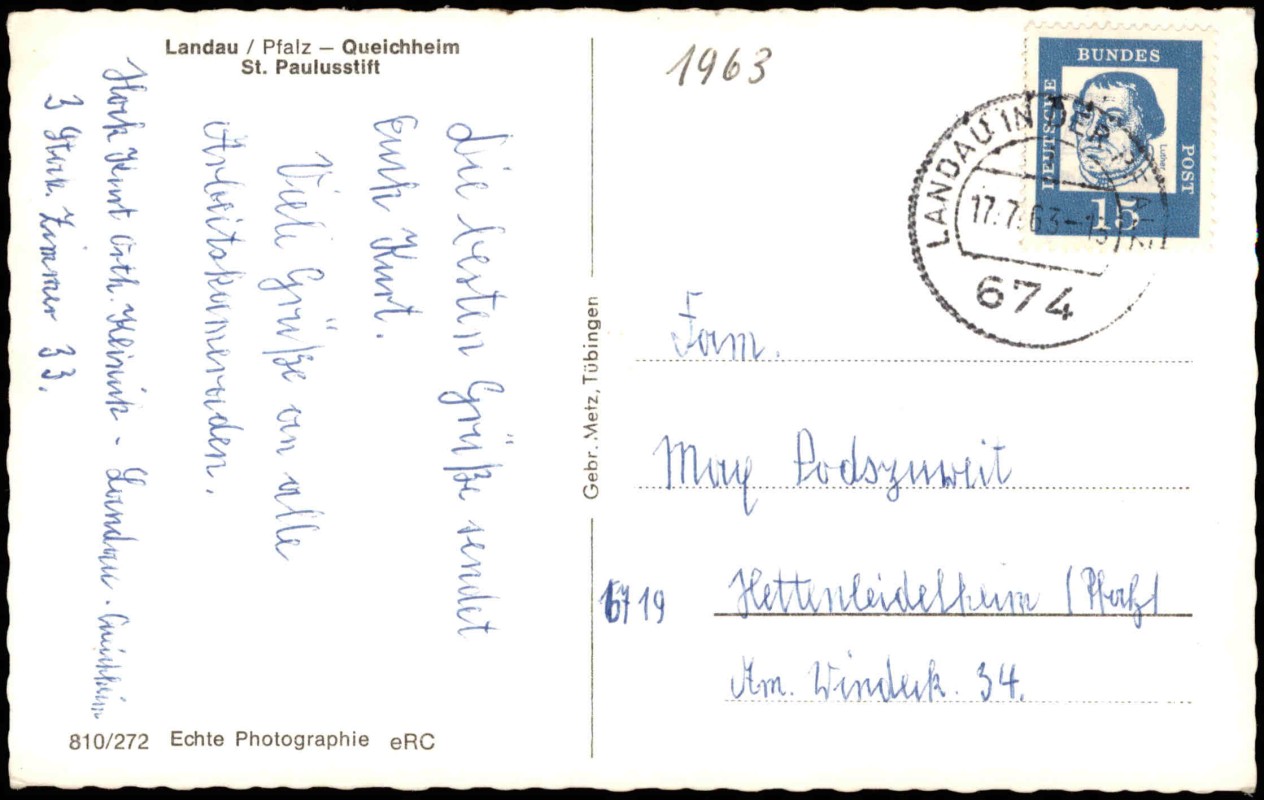 Landau / Pfalz – Queichheim
St. Paulusstift
1963
BUNDES
DEUTSCHE
POST
Luther
15
LANDAU IN DER PFALZ
17.7.63
674
Die besten Grüße sendet
Euch Kurt.
Viele Grüße an alle
Arbeitskameraden.
Kurt Orth. Klinik - Landau. Queichheim
3 Stock. Zimmer 33.
Gebr. Metz, Tübingen
Fam.
May Podszuweit
6719 Hettenleidelheim (Pfalz)
Am. Windeck. 34.
810/272 Echte Photographie eRC